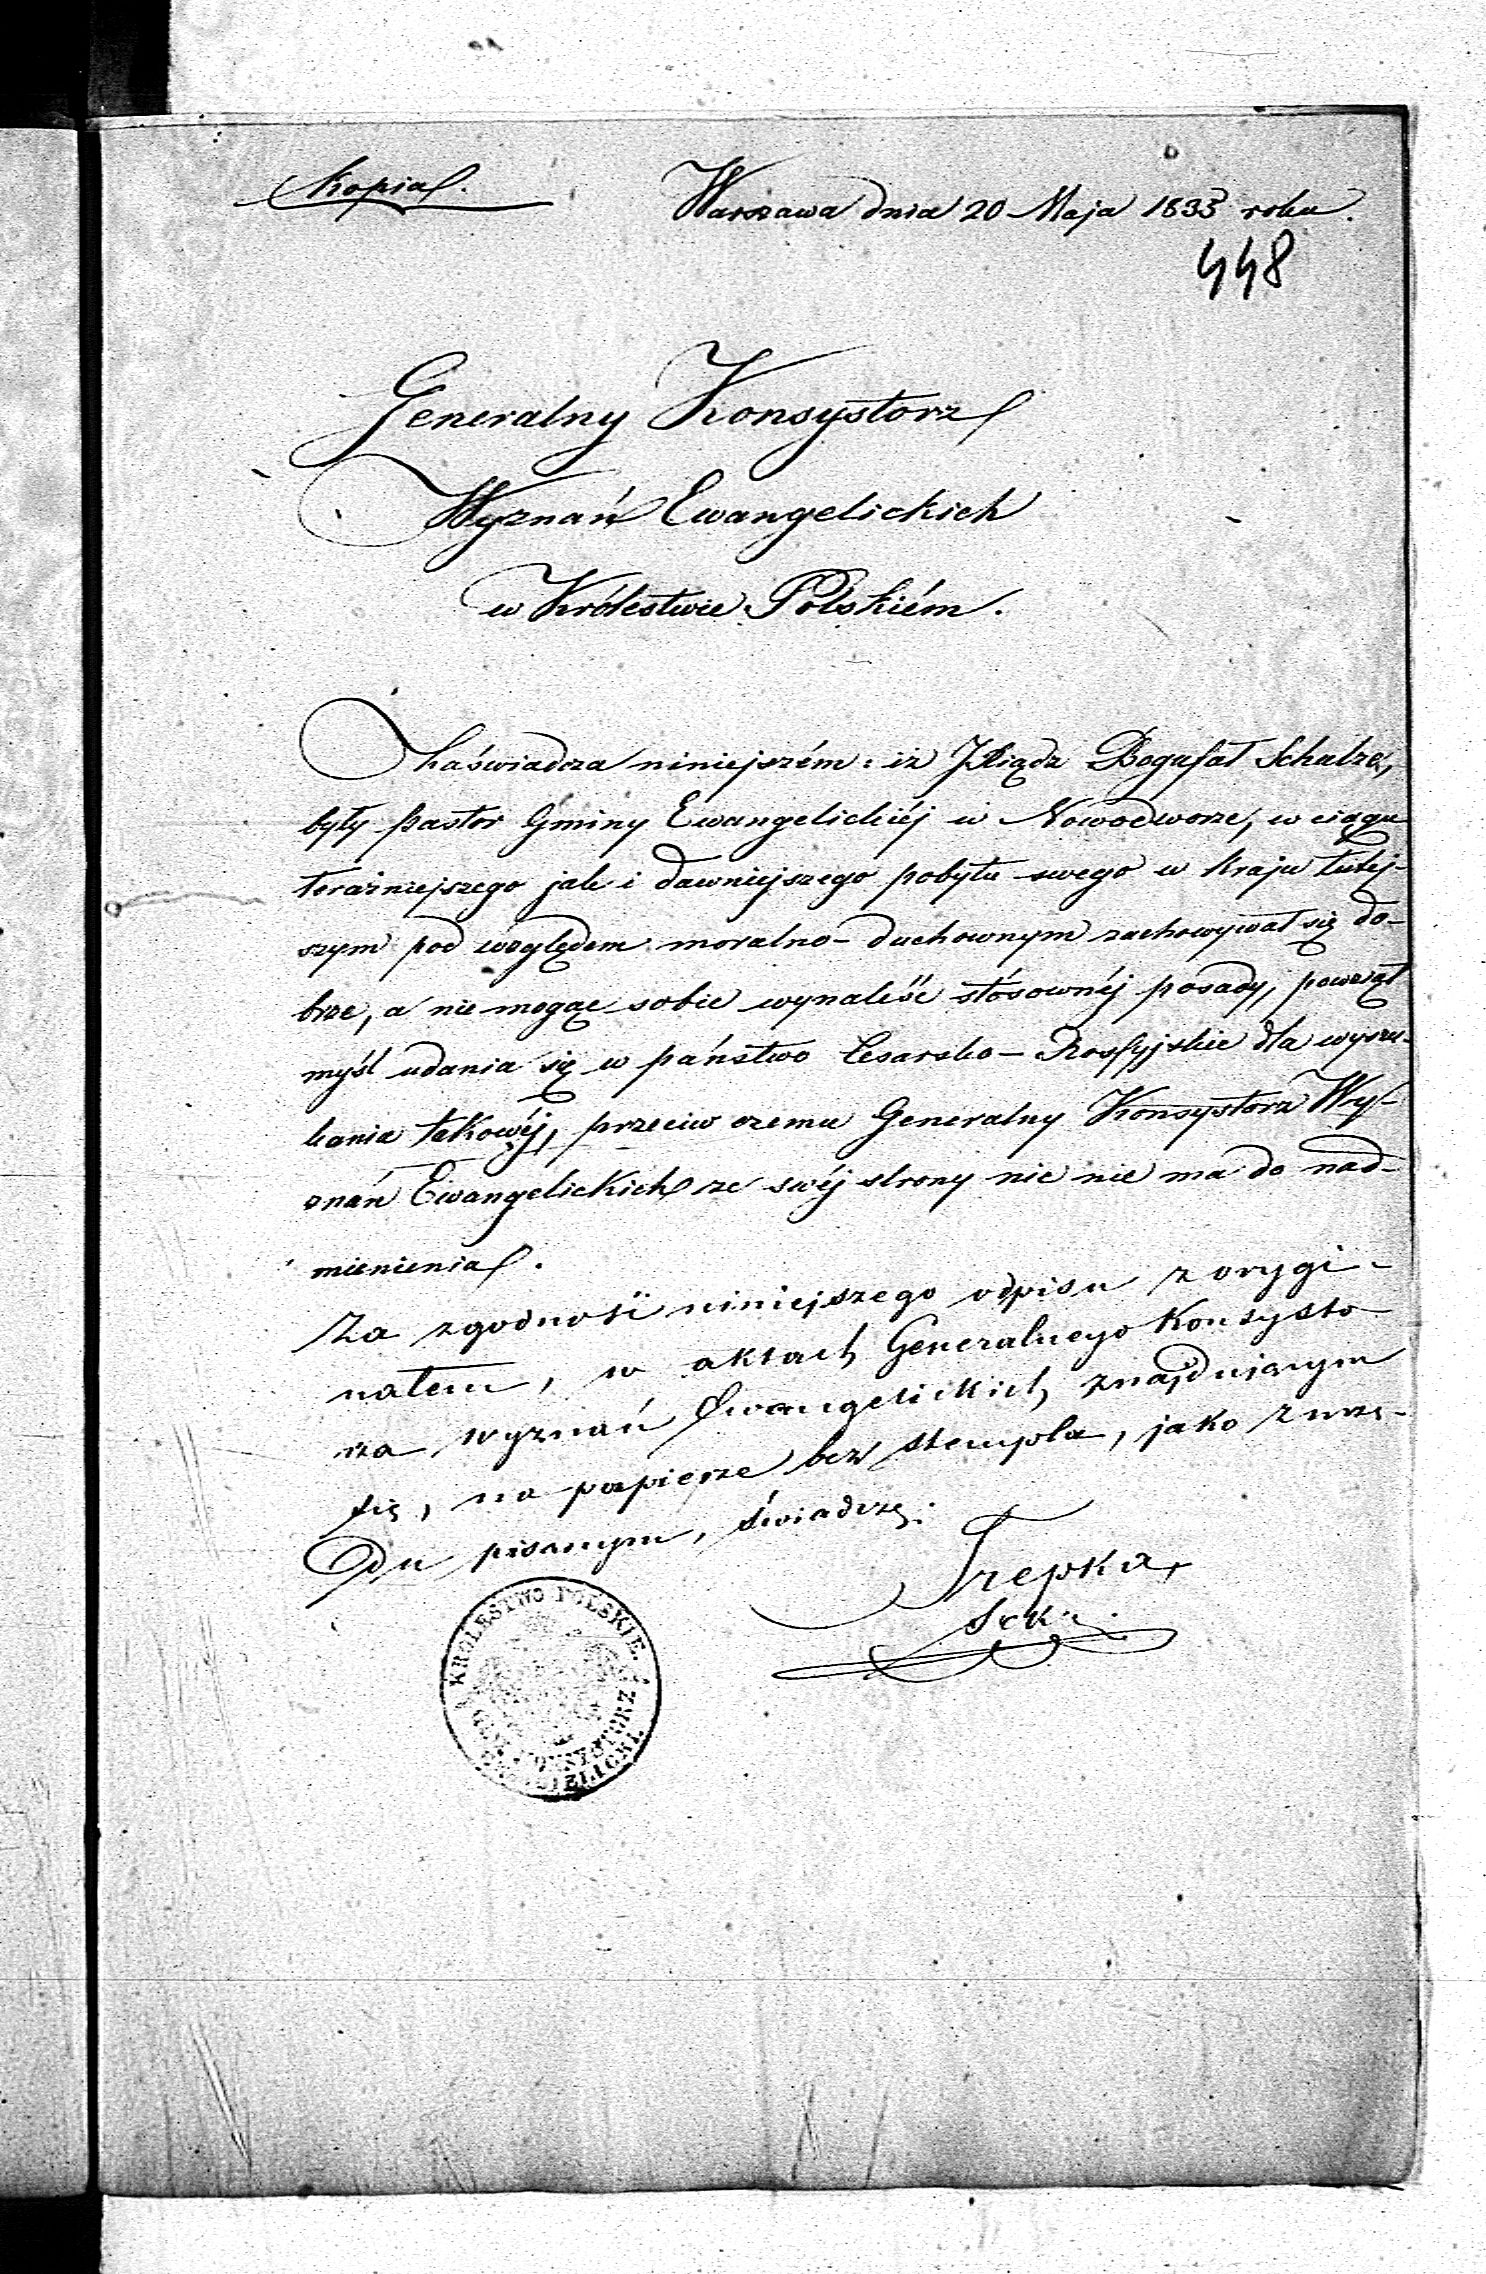 Kopia.
Warszawa dnia 20 Maja 1833 roku.
448
Generalny Konsystorz
Wyznań Ewangelickich
w Królestwie Polskiém.
Zaświadcza niniejszém: iż Xiądz Bogufał Schulze,
były Pastor Gminy Ewangelickiéj w Nowodworze, w ciągu
teraźniejszego jak i dawniejszego pobytu swego w Kraju tutej-
szym pod względem moralno-duchownym zachowywał się do-
brze, a nie mogąc sobie wynaleść stósownéj posady, powziął
myśl udania się w państwo Cesarsko-Rossyjskie dla wyszu-
kania takowéj, przeciw czemu Generalny Konsystorz Wy-
znań Ewangelickich ze swéj strony nic nie ma do nad-
mienienia.
Za zgodność niniejszego odpisu z orygi-
nałem, w aktach Generalnego Konsysto-
rza Wyznań Ewangelickich znajdującym
się, na papierze bez stempla, jako z urzę-
du pisanym, świadczę.
Trepka
KRÓLESTWO POLSKIE.
GEN. KONSYSTORZ
EWANGELICKI.